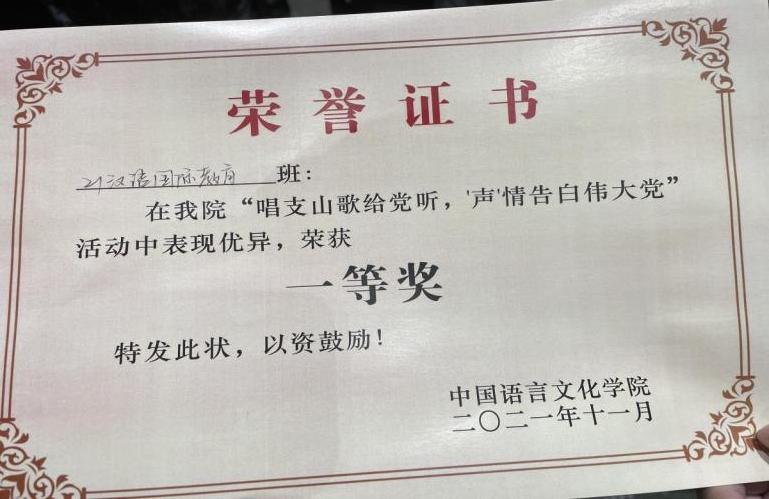 荣誉证书
21汉语国际教育班：
在我院“唱支山歌给党听，'声'情告白伟大党”
活动中表现优异，荣获
一等奖
特发此状，以资鼓励！
中国语言文化学院
二〇二一年十一月